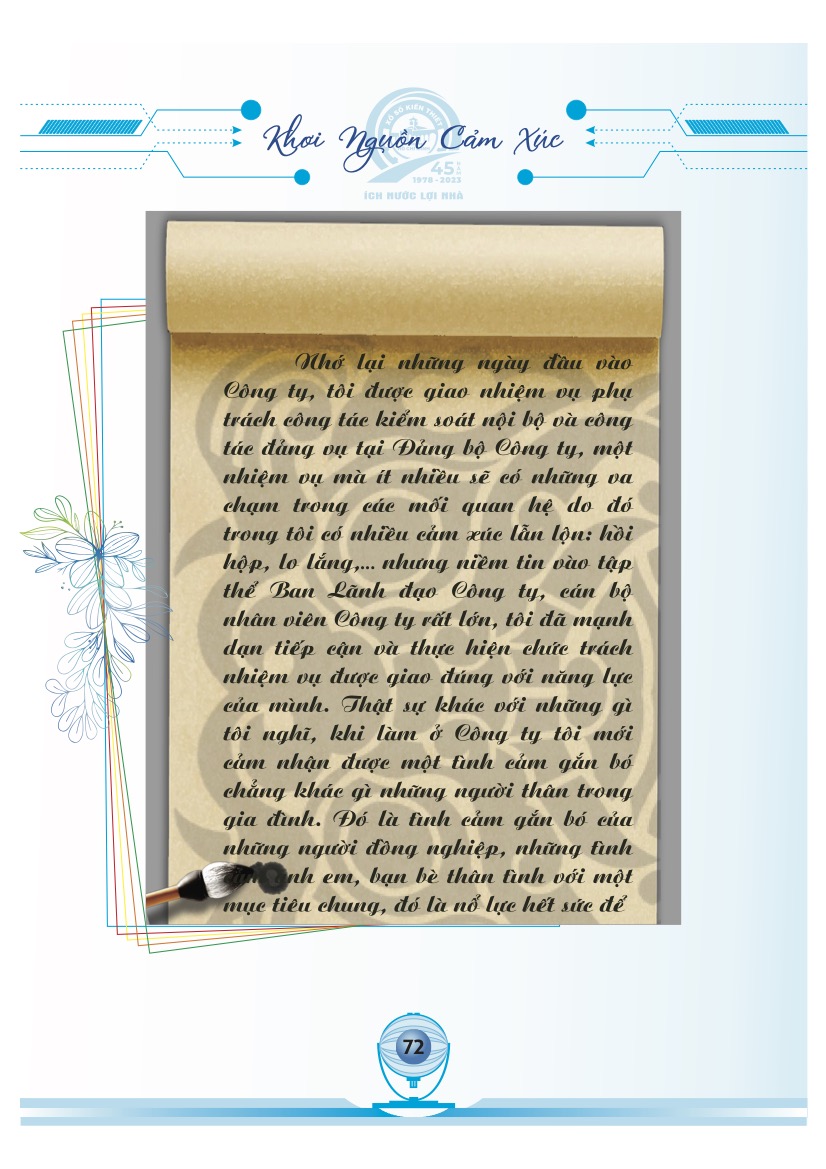 XỔ SỐ KIẾN THIẾT
Khơi Nguồn Cảm Xúc
45 NĂM
1978 - 2023
ÍCH NƯỚC LỢI NHÀ
Nhớ lại những ngày đầu vào
Công ty, tôi được giao nhiệm vụ phụ
trách công tác kiểm soát nội bộ và công
tác đảng vụ tại Đảng bộ Công ty, một
nhiệm vụ mà ít nhiều sẽ có những va
chạm trong các mối quan hệ do đó
trong tôi có nhiều cảm xúc lẫn lộn: hồi
hộp, lo lắng,... nhưng niềm tin vào tập
thể Ban Lãnh đạo Công ty, cán bộ
nhân viên Công ty rất lớn, tôi đã mạnh
dạn tiếp cận và thực hiện chức trách
nhiệm vụ được giao đúng với năng lực
của mình. Thật sự khác với những gì
tôi nghĩ, khi làm ở Công ty tôi mới
cảm nhận được một tình cảm gắn bó
chẳng khác gì những người thân trong
gia đình. Đó là tình cảm gắn bó của
những người đồng nghiệp, những tình
anh em, bạn bè thân tình với một
mục tiêu chung, đó là nổ lực hết sức để
72